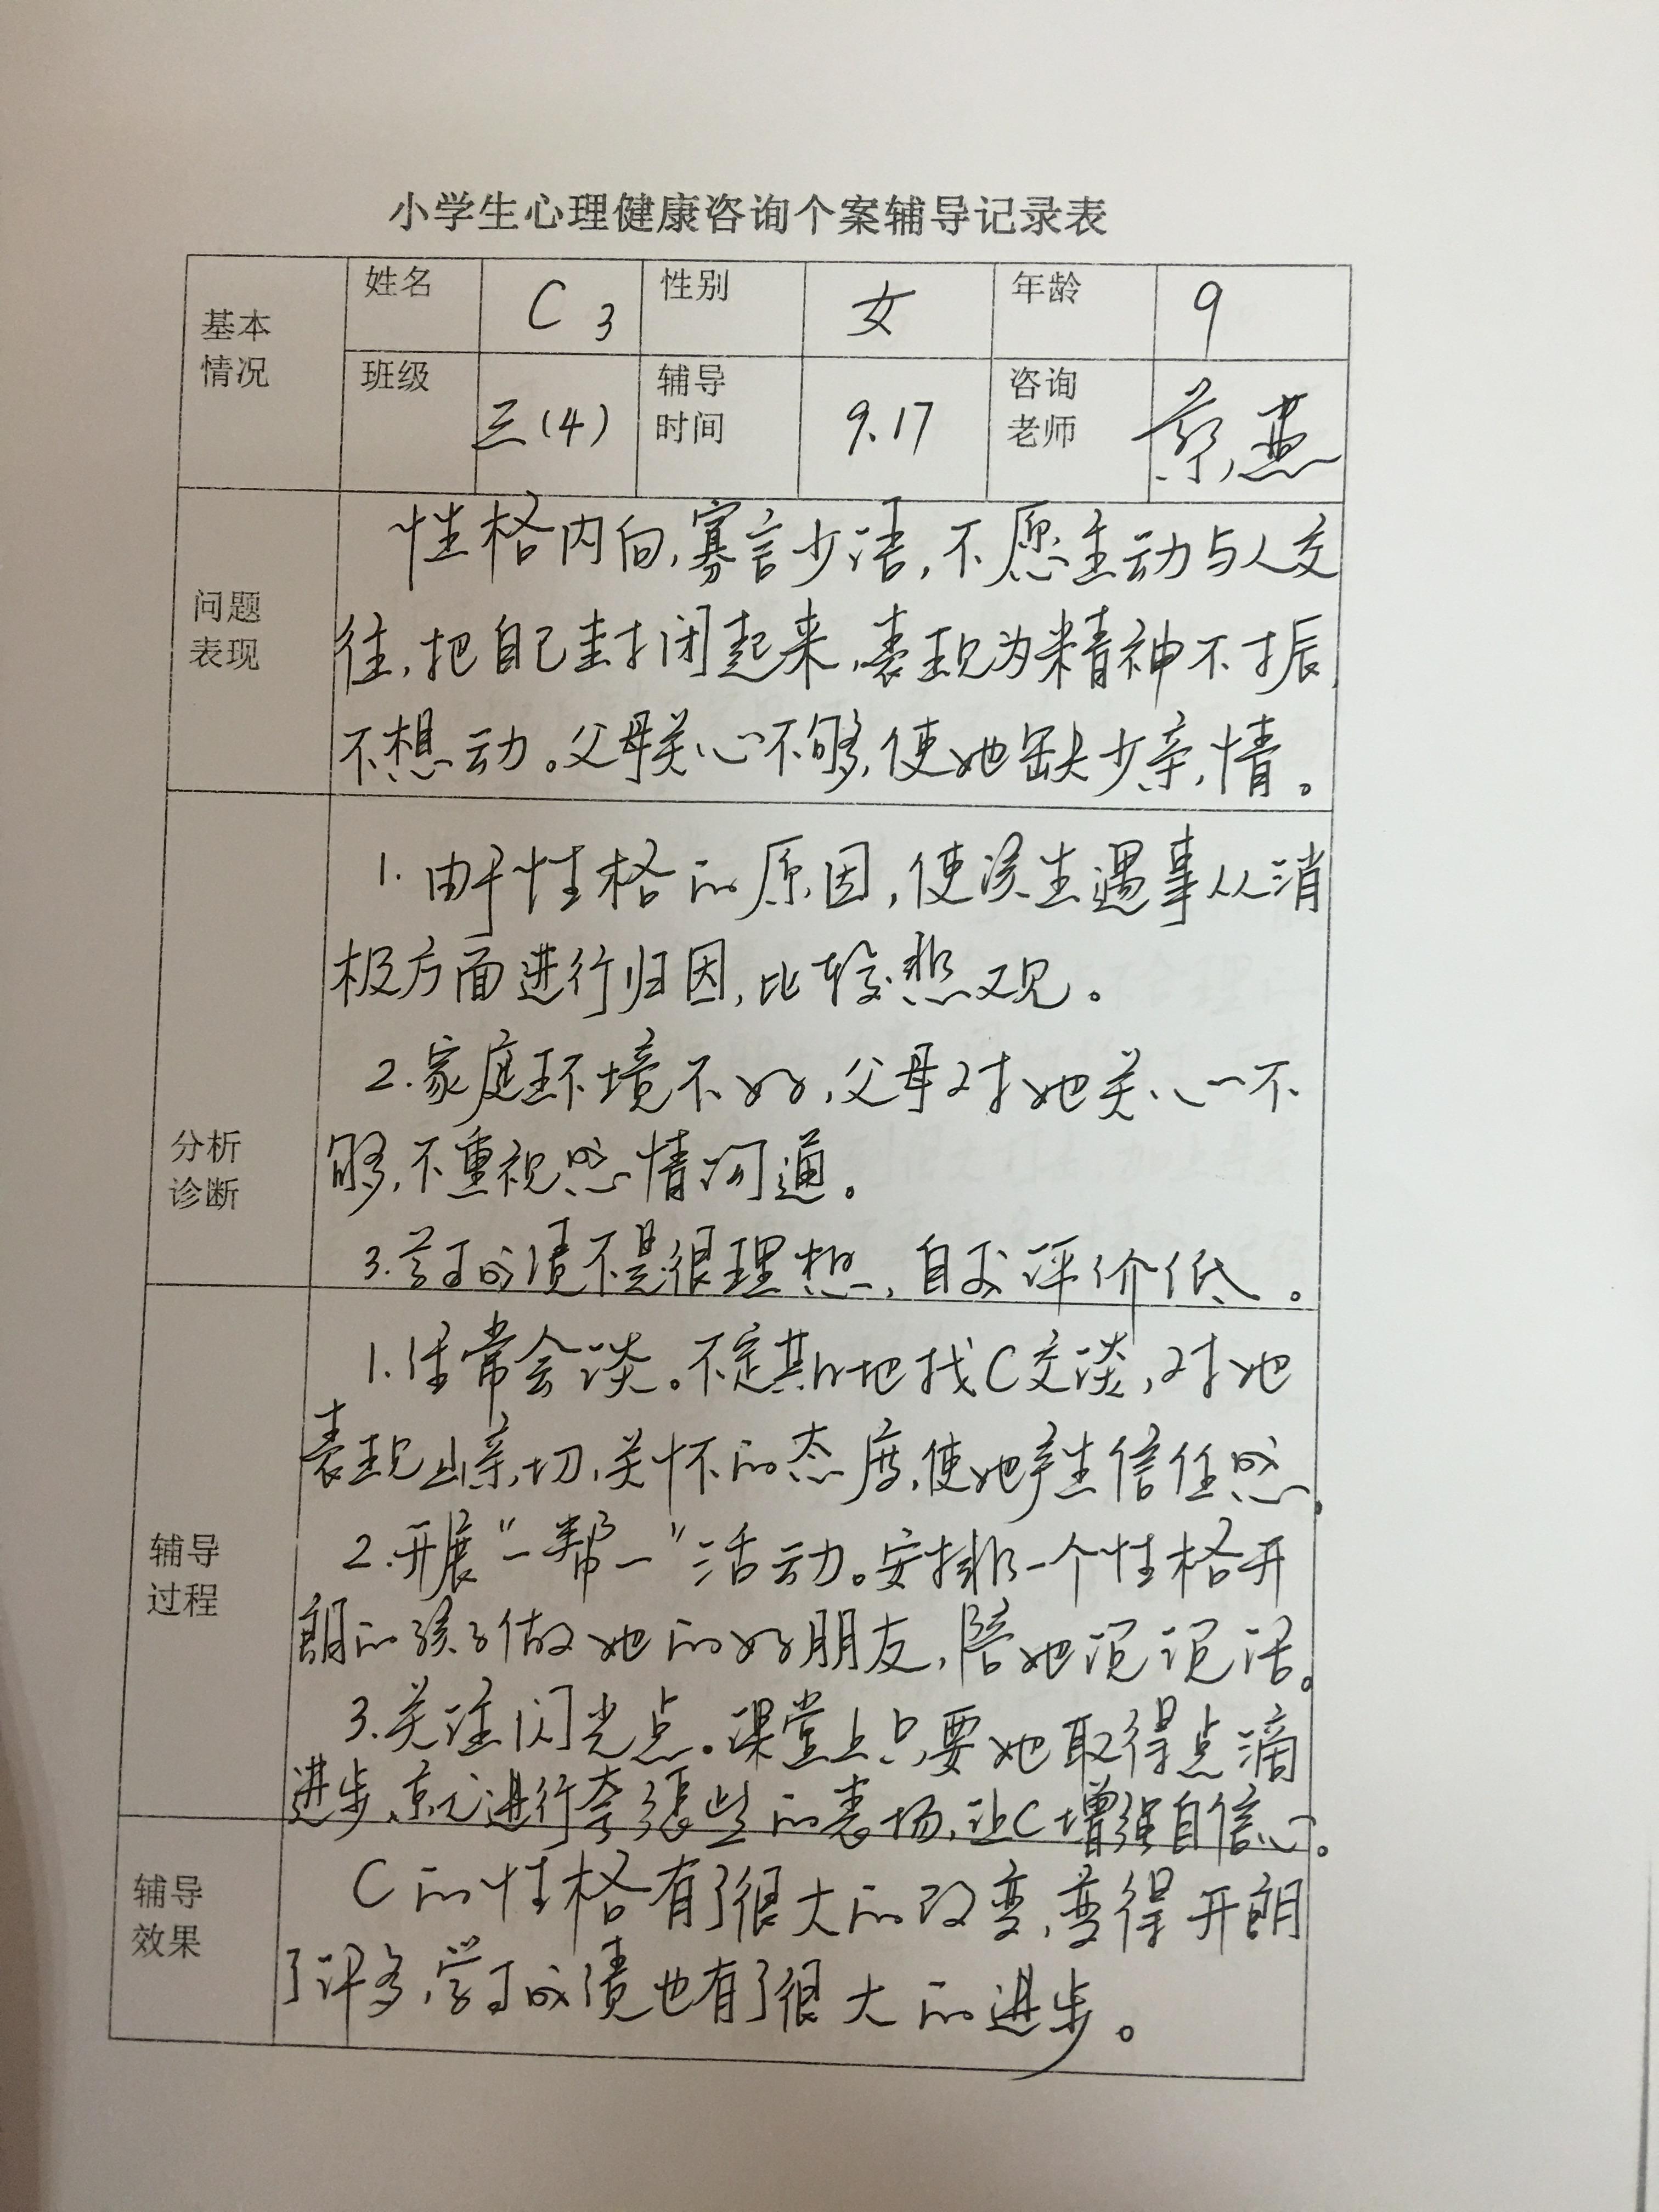 小学生心理健康咨询个案辅导记录表
基本情况 姓名 C3 性别 女 年龄 9
班级 三(4) 辅导时间 9.17 咨询老师 蔡燕
问题表现
性格内向,寡言少语,不愿主动与人交
往,把自己封闭起来,表现为精神不振,
不想动。父母关心不够,使她缺少亲情。
分析诊断
1.由于性格的原因,使该生遇事从消
极方面进行归因,比较悲观。
2.家庭环境不好,父母对她关心不
够,不重视感情沟通。
3.学习成绩不是很理想,自我评价低。
辅导过程
1.经常会谈。不定期地找C交谈,对她
表现出亲切、关怀的态度,使她产生信任感。
2.开展“一帮一”活动。安排一个性格开
朗的孩子做她的好朋友,陪她说说话。
3.关注闪光点。课堂上只要她取得点滴
进步,就进行夸张些的表扬,让C增强自信心。
辅导效果
C的性格有了很大的改变,变得开朗
了许多,学习成绩也有了很大的进步。